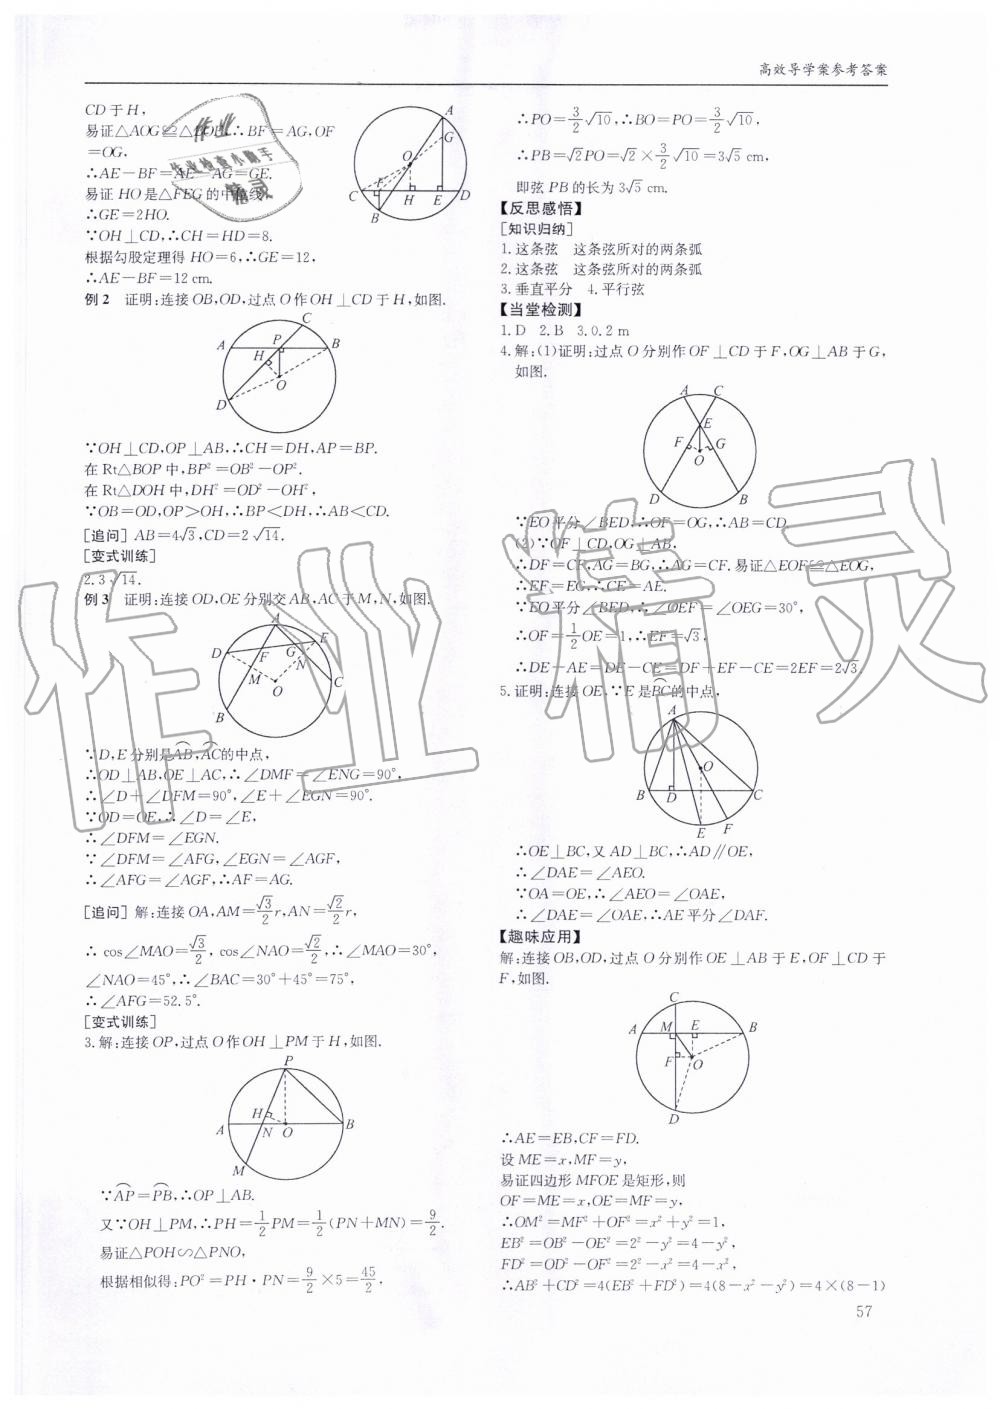 高效导学案参考答案
CD于H，
易证△AOG≌△BOF，∴BF=AG，OF
=OG，
∴AE-BF=AE-AG=GE.
易证 HO是△FEG的中位线，
∴GE=2HO.
∵OH⊥CD，∴CH=HD=8.
根据勾股定理得HO=6，∴GE=12，
∴AE-BF=12 cm.
例2 证明：连接OB，OD，过点O作OH⊥CD于H，如图.
∵OH⊥CD，OP⊥AB，∴CH=DH，AP=BP.
在Rt△BOP中，BP²=OB²-OP².
在Rt△DOH中，DH²=OD²-OH²，
∵OB=OD，OP>OH，∴BP<DH，∴AB<CD.
[追问] AB=4√3，CD=2√14.
[变式训练]
2.3 √14.
例3 证明：连接OD，OE分别交AB，AC于M，N，如图.
∵D，E分别是AB，AC的中点，
∴OD⊥AB，OE⊥AC，∴∠DMF=∠ENG=90°，
∴∠D+∠DFM=90°，∠E+∠EGN=90°.
∵OD=OE，∴∠D=∠E，
∴∠DFM=∠EGN.
∵∠DFM=∠AFG，∠EGN=∠AGF，
∴∠AFG=∠AGF，∴AF=AG.
[追问] 解：连接OA，AM=√3/2 r，AN=√2/2 r，
∴cos∠MAO=√3/2，cos∠NAO=√2/2，∴∠MAO=30°，
∠NAO=45°，∴∠BAC=30°+45°=75°，
∴∠AFG=52.5°.
[变式训练]
3.解：连接OP，过点O作OH⊥PM于H，如图.
∵AP=PB，∴OP⊥AB.
又∵OH⊥PM，∴PH=1/2 PM=1/2(PN+MN)=9/2.
易证△POH∽△PNO，
根据相似得：PO²=PH·PN=9/2×5=45/2，
∴PO=3/2 √10，∴BO=PO=3/2 √10，
∴PB=√2PO=√2×3/2 √10=3√5 cm，
即弦PB的长为3√5 cm.
【反思感悟】
[知识归纳]
1.这条弦 这条弦所对的两条弧
2.这条弦 这条弦所对的两条弧
3.垂直平分 4.平行弦
【当堂检测】
1.D 2.B 3.0.2 m
4.解：(1)证明：过点O分别作OF⊥CD于F，OG⊥AB于G，
如图.
∵EO平分∠BED，∴OF=OG，∴AB=CD.
(2)∵OF⊥CD，OG⊥AB，
∴DF=CF，AG=BG，∴AG=CF. 易证△EOF≌△EOG，
∴EF=EG，∴CE=AE.
∵EO平分∠BED，∴∠OEF=∠OEG=30°，
∴OF=1/2 OE=1，∴EF=√3，
∴DE-AE=DE-CE=DF+EF-CE=2EF=2√3.
5.证明：连接OE，∵E是BC的中点，
∴OE⊥BC，又AD⊥BC，∴AD∥OE，
∴∠DAE=∠AEO.
∵OA=OE，∴∠AEO=∠OAE，
∴∠DAE=∠OAE，∴AE平分∠DAF.
【趣味应用】
解：连接OB，OD，过点O分别作OE⊥AB于E，OF⊥CD于
F，如图.
∴AE=EB，CF=FD.
设ME=x，MF=y，
易证四边形MFOE是矩形，则
OF=ME=x，OE=MF=y，
∴OM²=MF²+OF²=x²+y²=1，
EB²=OB²-OE²=2²-y²=4-y²，
FD²=OD²-OF²=2²-x²=4-x²，
∴AB²+CD²=4(EB²+FD²)=4(8-x²-y²)=4×(8-1)
57